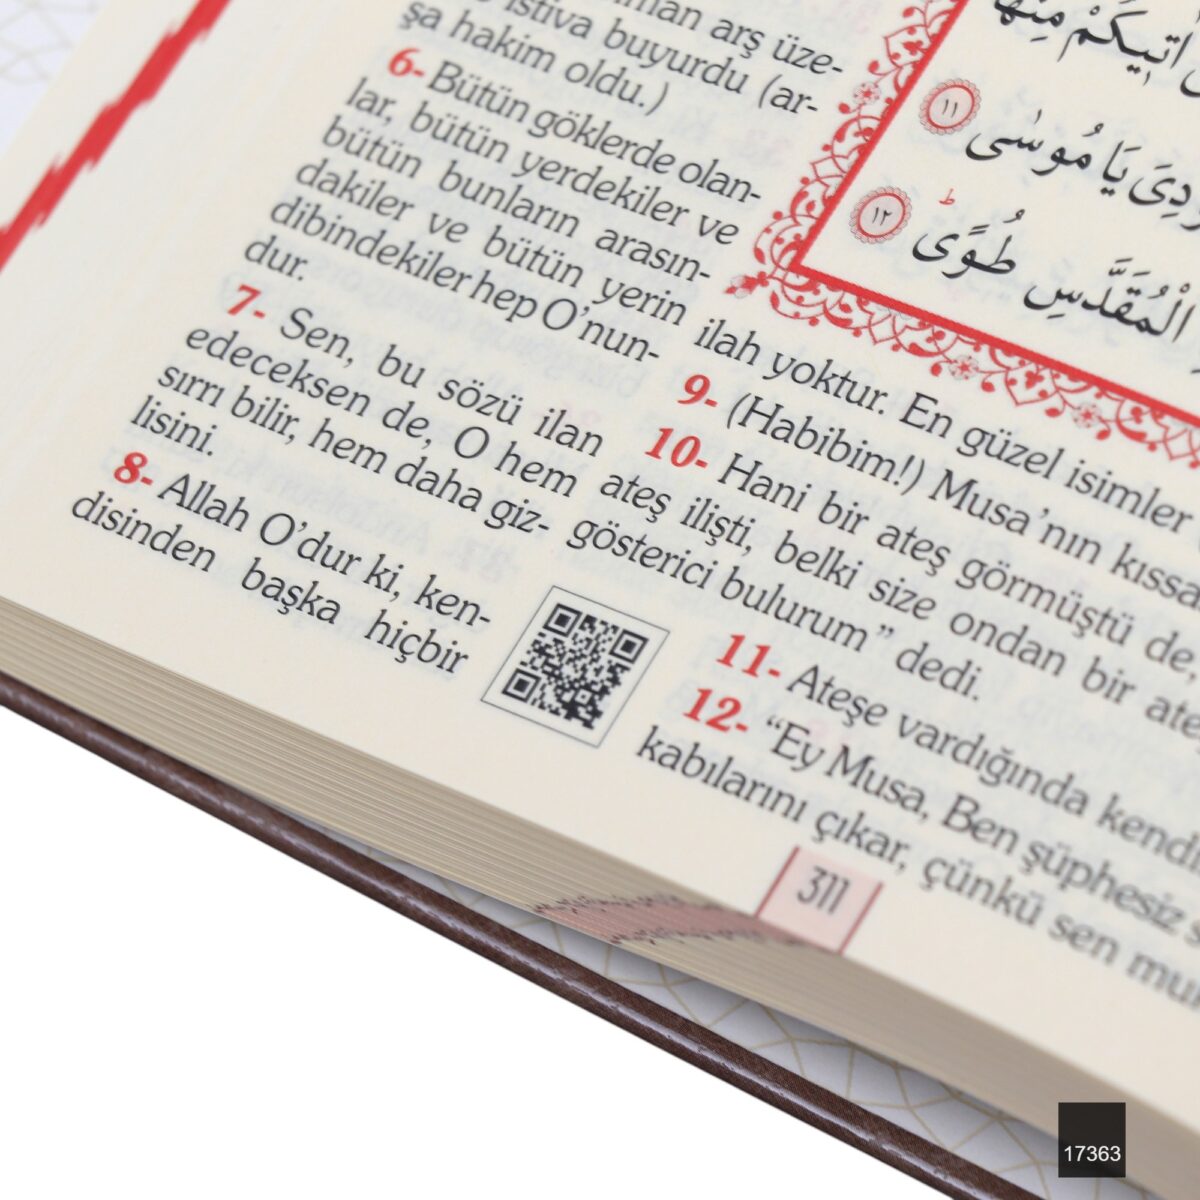 istiva buyurdu (ar-
şa hakim oldu.)
6- Bütün göklerde olan-
lar, bütün yerdekiler ve
bütün bunların arasın-
dakiler ve bütün yerin
dibindekiler hep O'nun-
dur.
7- Sen, bu sözü ilan
edeceksen de, O hem
sırrı bilir, hem daha giz-
lisini.
8- Allah O'dur ki, ken-
disinden başka hiçbir
ilah yoktur. En güzel isimler
9- (Habibim!) Musa'nın
10- Hani bir ateş görmüştü de,
ateş ilişti, belki size ondan bir
gösterici bulurum" dedi.
11- Ateşe vardığında
12- "Ey Musa, Ben şüphesiz
kabılarını çıkar, çünkü sen
اٰتٖيكُمْ مِنْهَا
يَا مُوسٰى ١١
الْمُقَدَّسِ طُوًى ١٢
311
17363